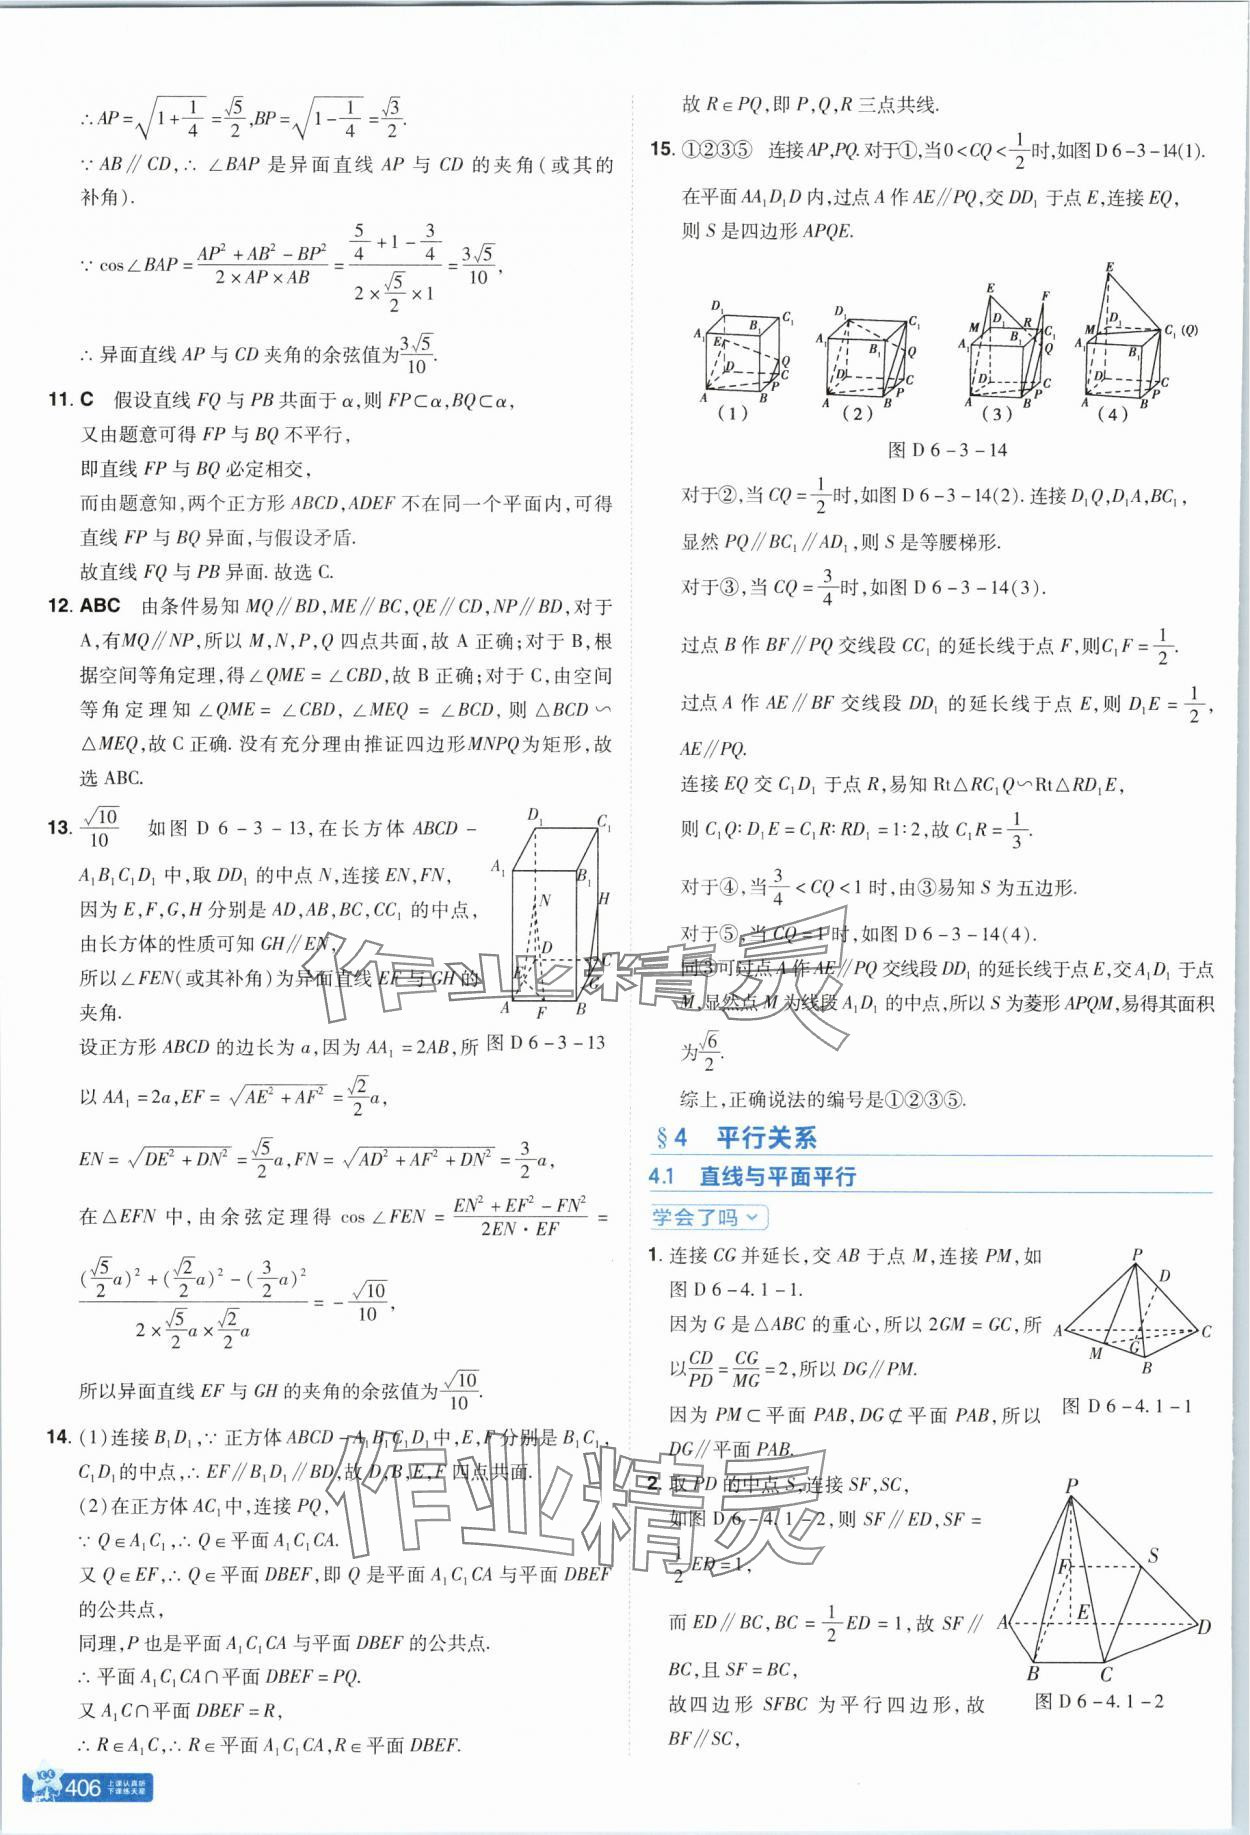 ∴AP=√(1+1/4)=√5/2,BP=√(1-1/4)=√3/2.
∵AB∥CD,∴∠BAP 是异面直线 AP 与 CD 的夹角(或其的
补角).
∵cos∠BAP=(AP²+AB²-BP²)/(2×AP×AB)=(5/4+1-3/4)/(2×√5/2×1)=3√5/10,
∴异面直线 AP 与 CD 夹角的余弦值为3√5/10.
11. C 假设直线 FQ 与 PB 共面于 α,则 FP⊂α,BQ⊂α,
又由题意可得 FP 与 BQ 不平行,
即直线 FP 与 BQ 必定相交,
而由题意知,两个正方形 ABCD,ADEF 不在同一个平面内,可得
直线 FP 与 BQ 异面,与假设矛盾.
故直线 FQ 与 PB 异面.故选 C.
12. ABC 由条件易知 MQ∥BD,ME∥BC,QE∥CD,NP∥BD,对于
A,有MQ∥NP,所以 M,N,P,Q 四点共面,故 A 正确;对于 B,根
据空间等角定理,得∠QME=∠CBD,故 B 正确;对于 C,由空间
等角定理知∠QME=∠CBD,∠MEQ=∠BCD,则△BCD∽
△MEQ,故 C 正确.没有充分理由推证四边形MNPQ为矩形,故
选 ABC.
13. √10/10 如图 D 6-3-13,在长方体 ABCD-
A₁B₁C₁D₁ 中,取 DD₁ 的中点 N,连接 EN,FN,
因为 E,F,G,H 分别是 AD,AB,BC,CC₁ 的中点,
由长方体的性质可知 GH∥EN,
所以∠FEN(或其补角)为异面直线 EF 与 GH 的
夹角.
D₁ C₁ A₁ B₁ N H D C E G A F B
图 D 6-3-13
设正方形 ABCD 的边长为 a,因为 AA₁=2AB,所
以 AA₁=2a,EF=√(AE²+AF²)=√2/2a,
EN=√(DE²+DN²)=√5/2a,FN=√(AD²+AF²+DN²)=3/2a,
在△EFN 中,由余弦定理得 cos∠FEN=(EN²+EF²-FN²)/(2EN·EF)=
((√5/2a)²+(√2/2a)²-(3/2a)²)/(2×√5/2a×√2/2a)=-√10/10,
所以异面直线 EF 与 GH 的夹角的余弦值为√10/10.
14. (1)连接 B₁D₁,∵正方体 ABCD-A₁B₁C₁D₁中,E,F 分别是 B₁C₁,
C₁D₁的中点,∴EF∥B₁D₁∥BD,故 D,B,E,F 四点共面.
(2)在正方体 AC₁中,连接 PQ,
∵Q∈A₁C₁,∴Q∈平面 A₁C₁CA.
又 Q∈EF,∴Q∈平面 DBEF,即 Q 是平面 A₁C₁CA 与平面 DBEF
的公共点,
同理,P 也是平面 A₁C₁CA 与平面 DBEF 的公共点.
∴平面 A₁C₁CA∩平面 DBEF=PQ.
又 A₁C∩平面 DBEF=R,
∴R∈A₁C,∴R∈平面 A₁C₁CA,R∈平面 DBEF.
故 R∈PQ,即 P,Q,R 三点共线.
15. ①②③⑤ 连接AP,PQ.对于①,当0<CQ<1/2时,如图 D 6-3-14(1).
在平面 AA₁D₁D 内,过点 A 作 AE∥PQ,交 DD₁ 于点 E,连接 EQ,
则 S 是四边形 APQE.
D₁ C₁ A₁ B₁ E Q D C P A B
D₁ C₁ A₁ B₁ Q D C P A B
E F M D₁ R C₁ A₁ B₁ Q D C P A B
E D₁ M C₁(Q) A₁ B₁ D C P A B
(1) (2) (3) (4)
图 D 6-3-14
对于②,当 CQ=1/2时,如图 D 6-3-14(2).连接 D₁Q,D₁A,BC₁,
显然 PQ∥BC₁∥AD₁,则 S 是等腰梯形.
对于③,当 CQ=3/4时,如图 D 6-3-14(3).
过点 B 作 BF∥PQ 交线段 CC₁ 的延长线于点 F,则C₁F=1/2.
过点 A 作 AE∥BF 交线段 DD₁ 的延长线于点 E,则 D₁E=1/2,
AE∥PQ.
连接 EQ 交 C₁D₁ 于点 R,易知 Rt△RC₁Q∽Rt△RD₁E,
则 C₁Q∶D₁E=C₁R∶RD₁=1∶2,故 C₁R=1/3.
对于④,当3/4<CQ<1 时,由③易知 S 为五边形.
对于⑤,当 CQ=1 时,如图 D 6-3-14(4).
同③可过点 A 作 AE∥PQ 交线段 DD₁ 的延长线于点 E,交 A₁D₁ 于点
M,显然点 M 为线段 A₁D₁ 的中点,所以 S 为菱形 APQM,易得其面积
为√6/2.
综上,正确说法的编号是①②③⑤.
§4 平行关系
4.1 直线与平面平行
学会了吗
1. 连接 CG 并延长,交 AB 于点 M,连接 PM,如
图 D 6-4.1-1.
因为 G 是△ABC 的重心,所以 2GM=GC,所
以CD/PD=CG/MG=2,所以 DG∥PM.
因为 PM⊂平面 PAB,DG⊄平面 PAB,所以
DG∥平面 PAB.
P D A C M G B
图 D 6-4.1-1
2. 取 PD 的中点 S,连接 SF,SC,
如图 D 6-4.1-2,则 SF∥ED,SF=
1/2ED=1,
而 ED∥BC,BC=1/2ED=1,故 SF∥
BC,且 SF=BC,
故四边形 SFBC 为平行四边形,故
BF∥SC,
P S F A E D B C
图 D 6-4.1-2
作业精灵
作业精灵
406 上课认真听
下课练天星